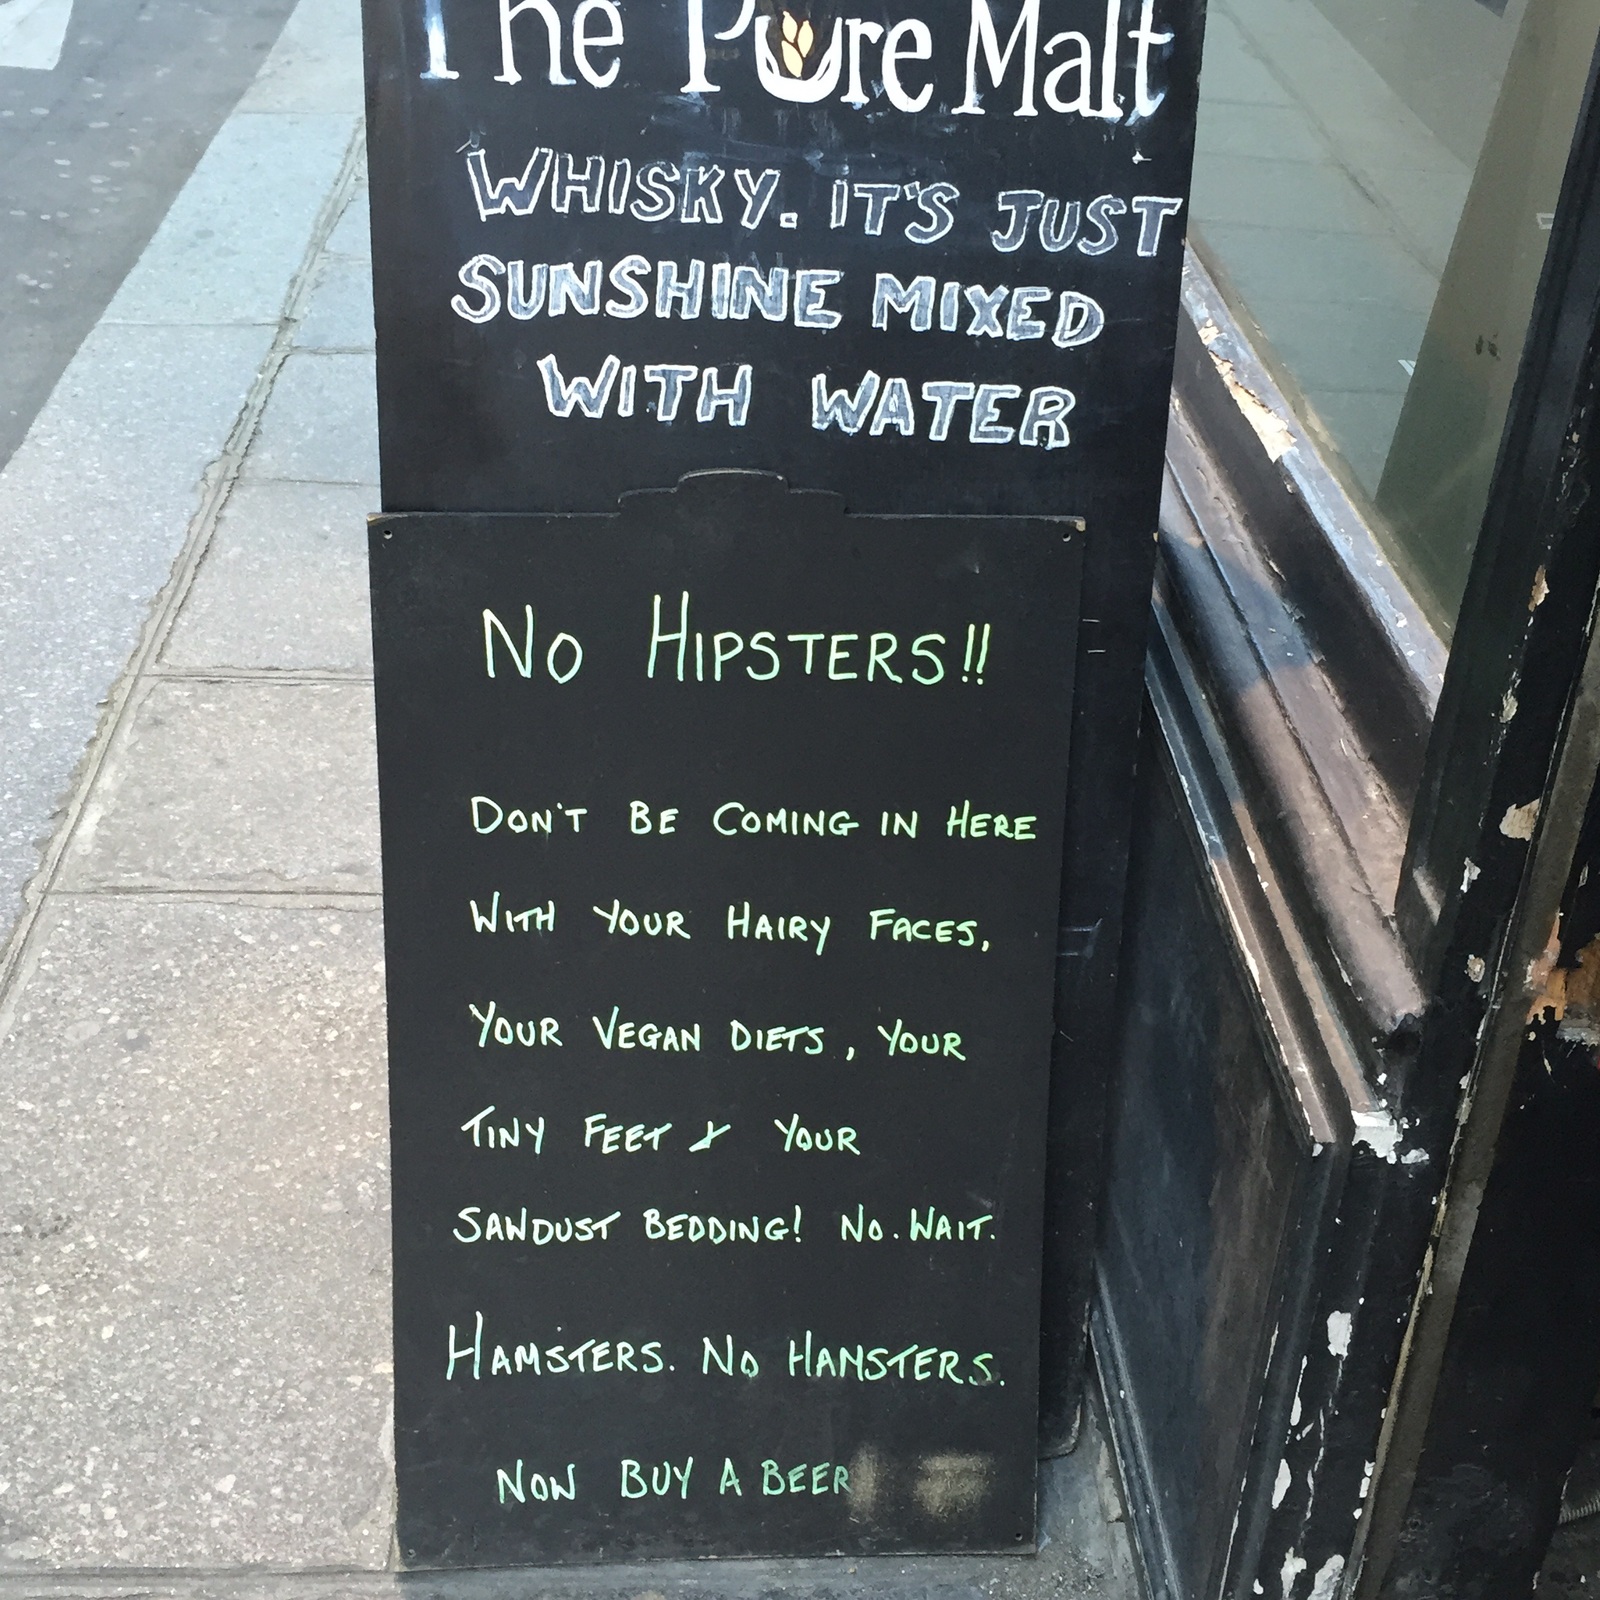 The Pure Malt
WHISKY. IT'S JUST
SUNSHINE MIXED
WITH WATER
NO HIPSTERS!!
DON'T BE COMING IN HERE
WITH YOUR HAIRY FACES,
YOUR VEGAN DIETS, YOUR
TINY FEET & YOUR
SAWDUST BEDDING! NO. WAIT.
HAMSTERS. NO HAMSTERS.
NOW BUY A BEER